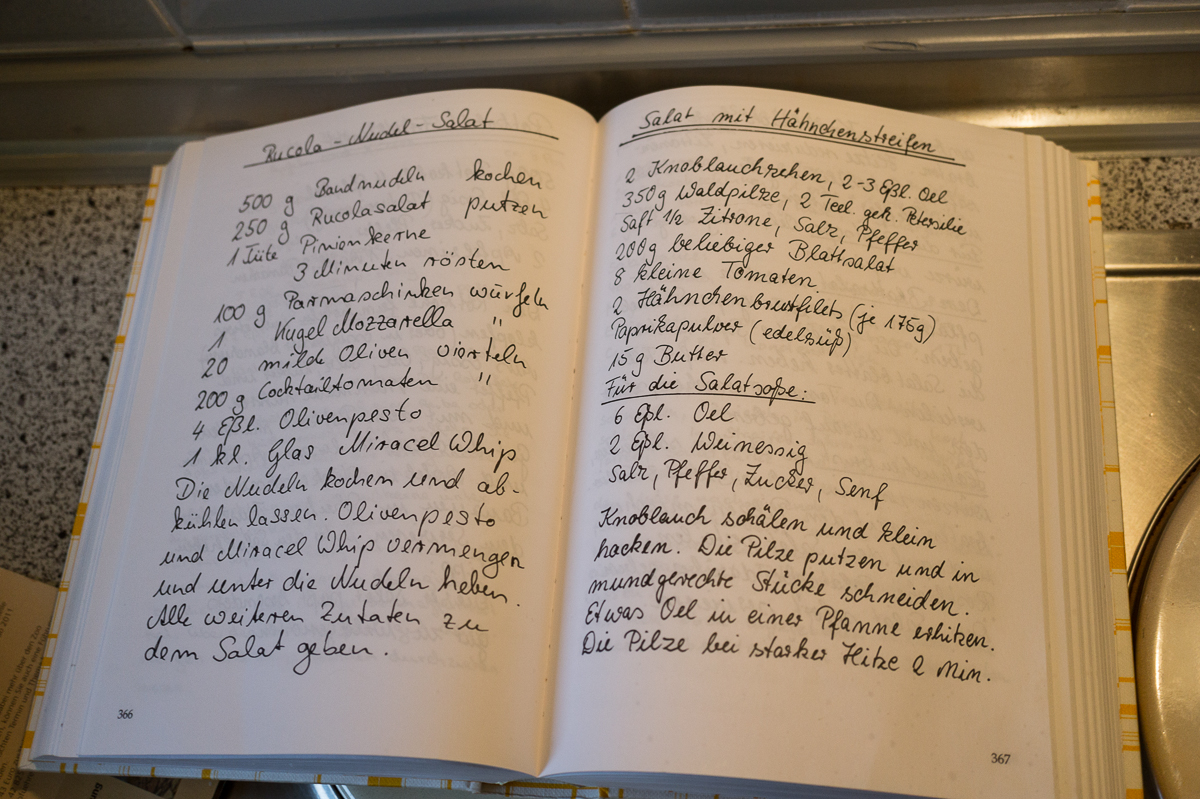 Rucola - Nudel - Salat
500 g Bandnudeln kochen
250 g Rucolasalat putzen
1 Tüte Pinienkerne
3 Minuten rösten
100 g Parmaschinken würfeln
1 Kugel Mozzarella "
20 milde Oliven vierteln
200 g Cocktailtomaten "
4 Eßl. Olivenpesto
1 kl. Glas Miracel Whip
Die Nudeln kochen und ab-
kühlen lassen. Olivenpesto
und Miracel Whip vermengen
und unter die Nudeln heben.
Alle weiteren Zutaten zu
dem Salat geben.
366
Salat mit Hähnchenstreifen
2 Knoblauchzehen, 2-3 Eßl. Oel
350g Waldpilze, 2 Teel. geh. Petersilie
Saft 1/2 Zitrone, Salz, Pfeffer
200g beliebiger Blattsalat
8 kleine Tomaten
2 Hähnchenbrustfilets (je 175g)
Paprikapulver (edelsüß)
15 g Butter
Für die Salatsoße:
6 Eßl. Oel
2 Eßl. Weinessig
Salz, Pfeffer, Zucker, Senf
Knoblauch schälen und klein
hacken. Die Pilze putzen und in
mundgerechte Stücke schneiden.
Etwas Oel in einer Pfanne erhitzen.
Die Pilze bei starker Hitze 2 Min.
367